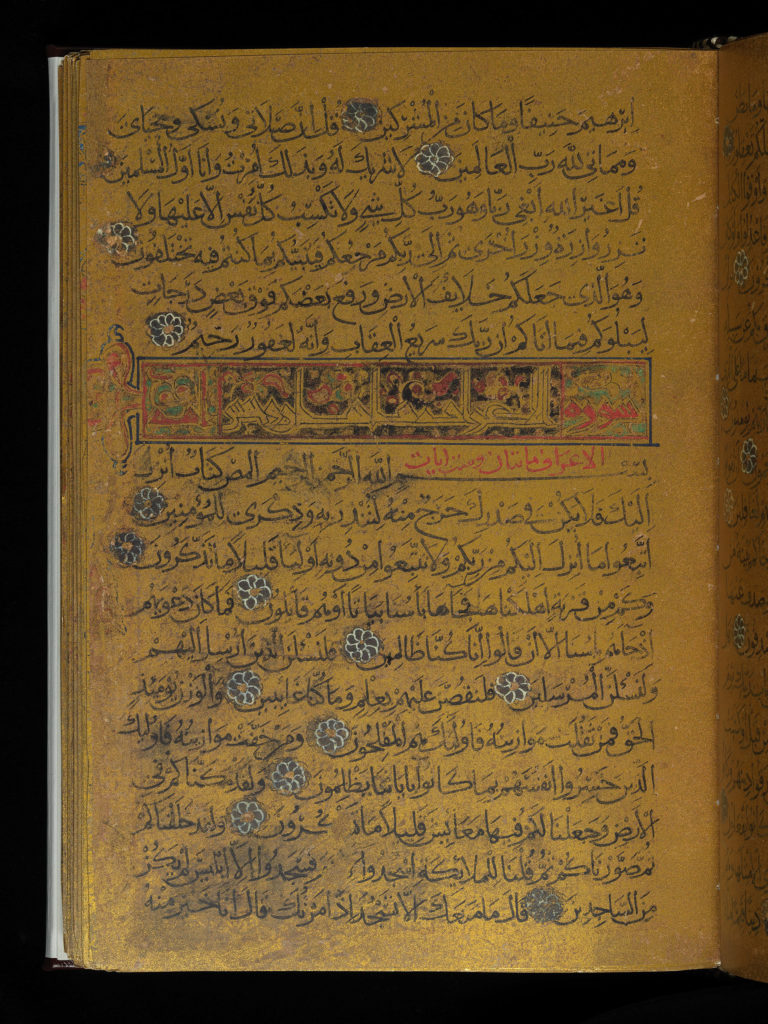 ابرهيم حنيفا وما كان من المشركين قل ان صلاتي ونسكي ومحياي
ومماتي لله رب العالمين لا شريك له وبذلك امرت وانا اول المسلمين
قل اغير الله ابغي ربا وهو رب كل شي ولا تكسب كل نفس الا عليها ولا
تزر وازرة وزر اخرى ثم الى ربكم مرجعكم فينبئكم بما كنتم فيه تختلفون
وهو الذي جعلكم خلايف الارض ورفع بعضكم فوق بعض درجات
ليبلوكم فيما اتاكم ان ربك سريع العقاب وانه لغفور رحيم
سورة
الاعراف مايتان وست ايات
بسم الله الرحمن الرحيم المص كتاب انزل
اليك فلا يكن في صدرك حرج منه لتنذر به وذكرى للمؤمنين
اتبعوا ما انزل اليكم من ربكم ولا تتبعوا من دونه اوليا قليلا ما تذكرون
وكم من قرية اهلكناها فجاها باسنا بياتا او هم قايلون فما كان دعويهم
اذ جاهم باسنا الا ان قالوا انا كنا ظالمين فلنسلن الذين ارسل اليهم
ولنسلن المرسلين فلنقصن عليهم بعلم وما كنا غايبين والوزن يومئذ
الحق فمن ثقلت موازينه فاولئك هم المفلحون ومن خفت موازينه فاولئك
الذين خسروا انفسهم بما كانوا باياتنا يظلمون ولقد مكناكم في
الارض وجعلنا لكم فيها معايش قليلا ما تشكرون ولقد خلقناكم
ثم صورناكم ثم قلنا للملايكة اسجدوا فسجدوا الا ابليس لم يكن
من الساجدين قال ما منعك الا تسجد اذ امرتك قال انا خير منه